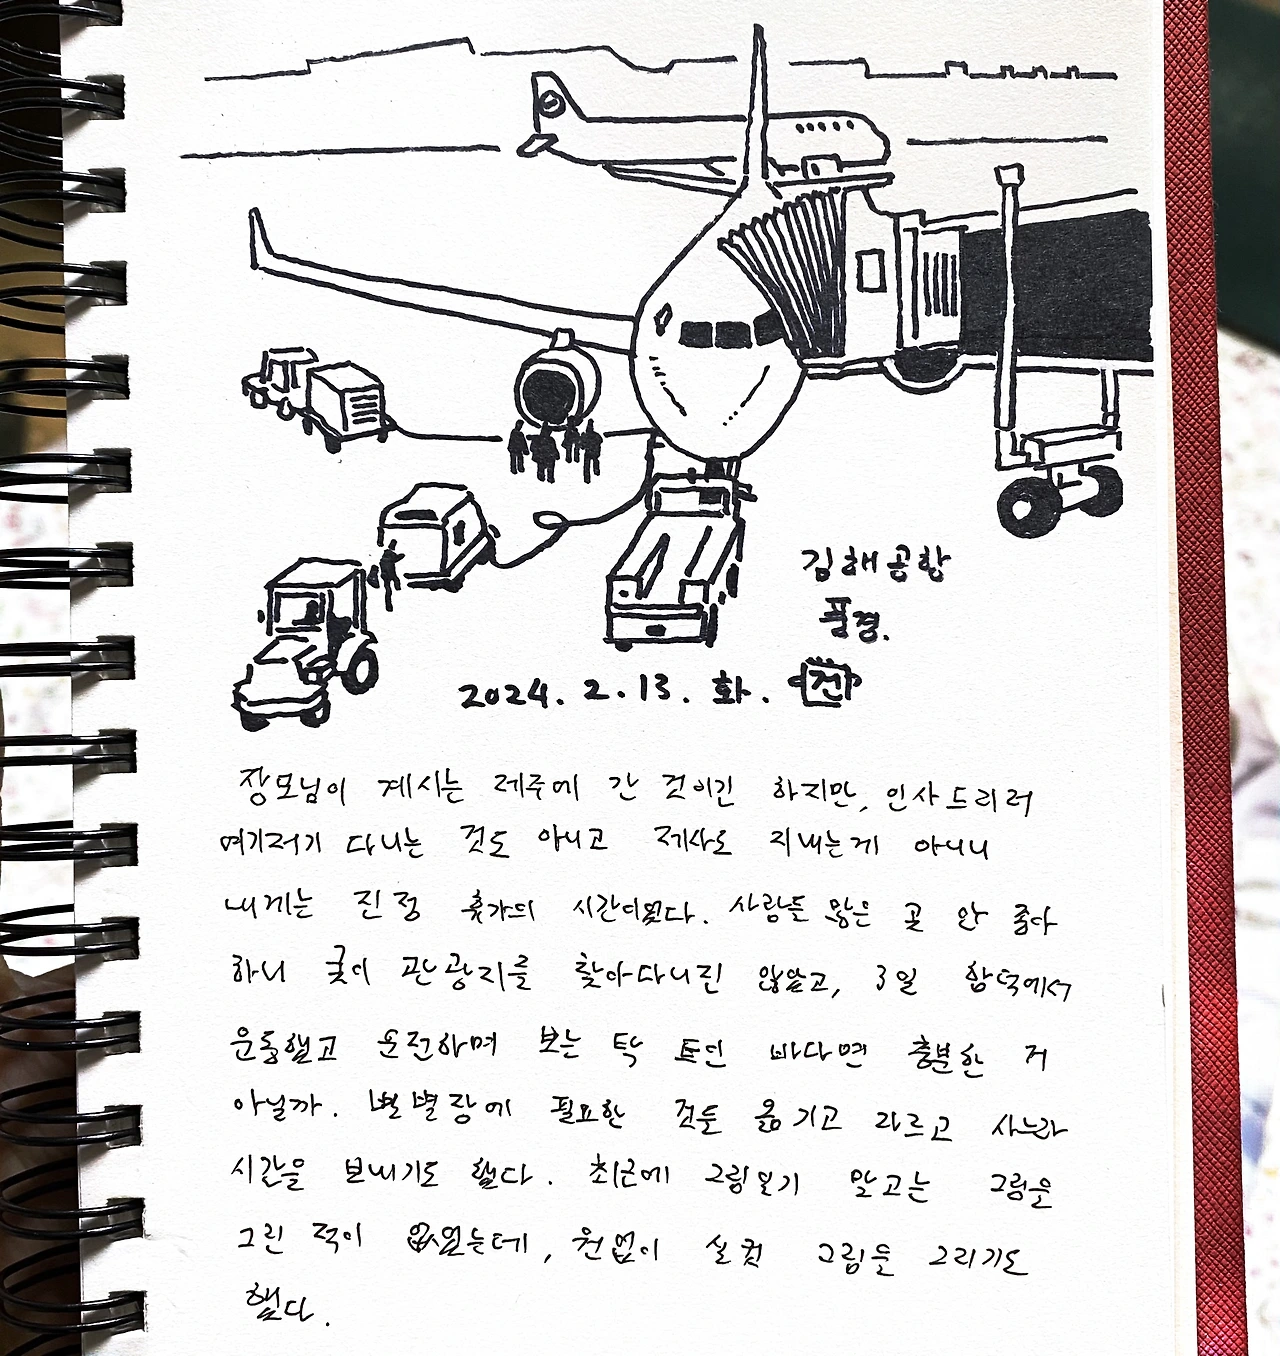 김해공항
풍경.
2024. 2. 13. 화. 건
장모님이 계시는 제주에 간 것이긴 하지만, 인사드리러
여기저기 다니는 것도 아니고 제사도 지내는게 아니니
내게는 진정 휴가의 시간이었다. 사람들 많은 곳 안 좋아
하니 굳이 관광지를 찾아다니진 않았고, 3일 함덕에서
운동했고 운전하며 보는 탁 트인 바다면 충분한 거
아닐까. 별장에 필요한 것들 옮기고 나르고 사느라
시간을 보내기도 했다. 최근에 그림일기 말고는 그림을
그린 적이 없었는데, 원없이 실컷 그림을 그리기도
했다.